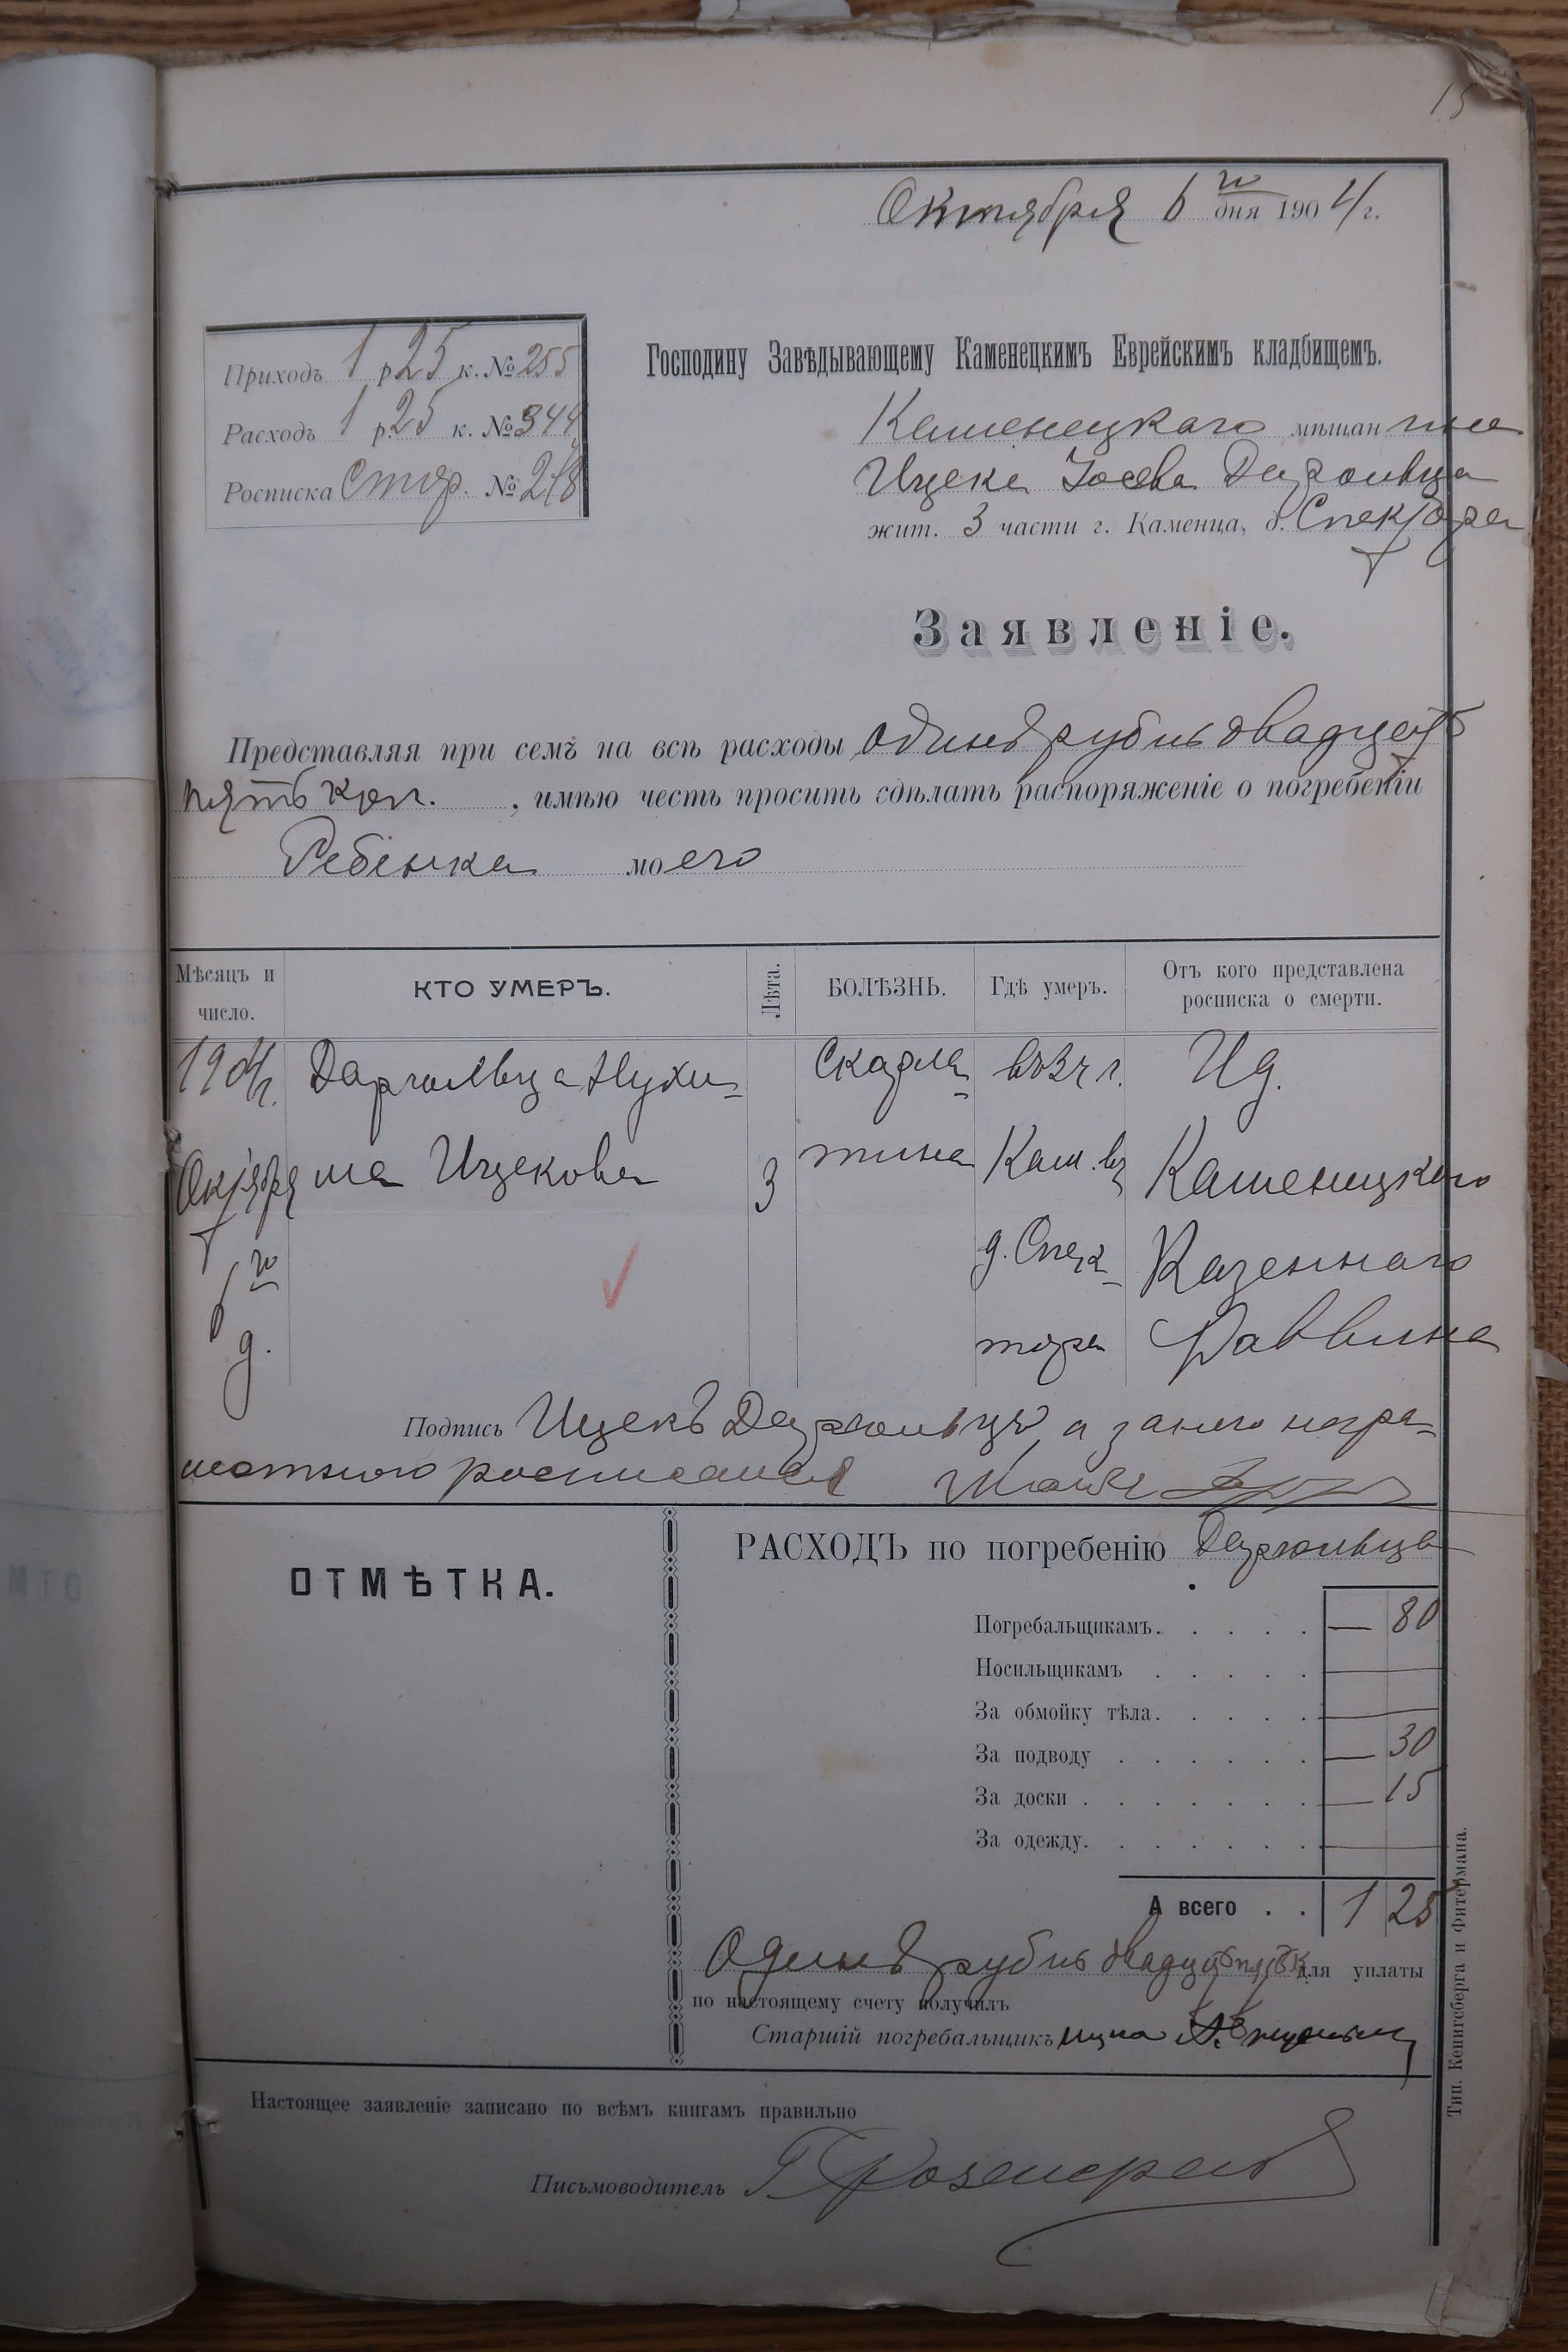 15
Октября 6 го дня 1904 г.
Приходъ 1 р 25 к. № 255
Расходъ 1 р. 25 к. № 344
Росписка стор. № 218
Господину Завѣдывающему Каменецкимъ Еврейскимъ кладбищемъ.
Каменецкаго мѣщанина
Ицека Іосева
жит. 3 части г. Каменца, д. Спектора
Заявленіе.
Представляя при семъ на всѣ расходы одинъ рубль двадцать
пять коп. , имѣю честь просить сдѣлать распоряженіе о погребеніи
Ребенка моего
Мѣсяцъ и число.
КТО УМЕРЪ.
Лѣта.
БОЛѢЗНЬ.
Гдѣ умеръ.
Отъ кого представлена росписка о смерти.
1904 г. Скарла- въ 3 ч г. Ид.
Октября Ицекова 3 тина Кам. въ Каменецкаго
6 го д. Спек- Казеннаго
д. тора Раввина
Подпись Ицекъ а за него негра-
мотнаго росписался
ОТМѢТКА.
РАСХОДЪ по погребенію
Погребальщикамъ. — 80
Носильщикамъ
За обмойку тѣла.
За подводу — 30
За доски — 15
За одежду.
А всего 1 25
Одинъ рубль двадцать пять к для уплаты
по настоящему счету получилъ
Старшій погребальщикъ
Настоящее заявленіе записано по всѣмъ книгамъ правильно
Письмоводитель
Тип. Кенигсберга и Фитермана.